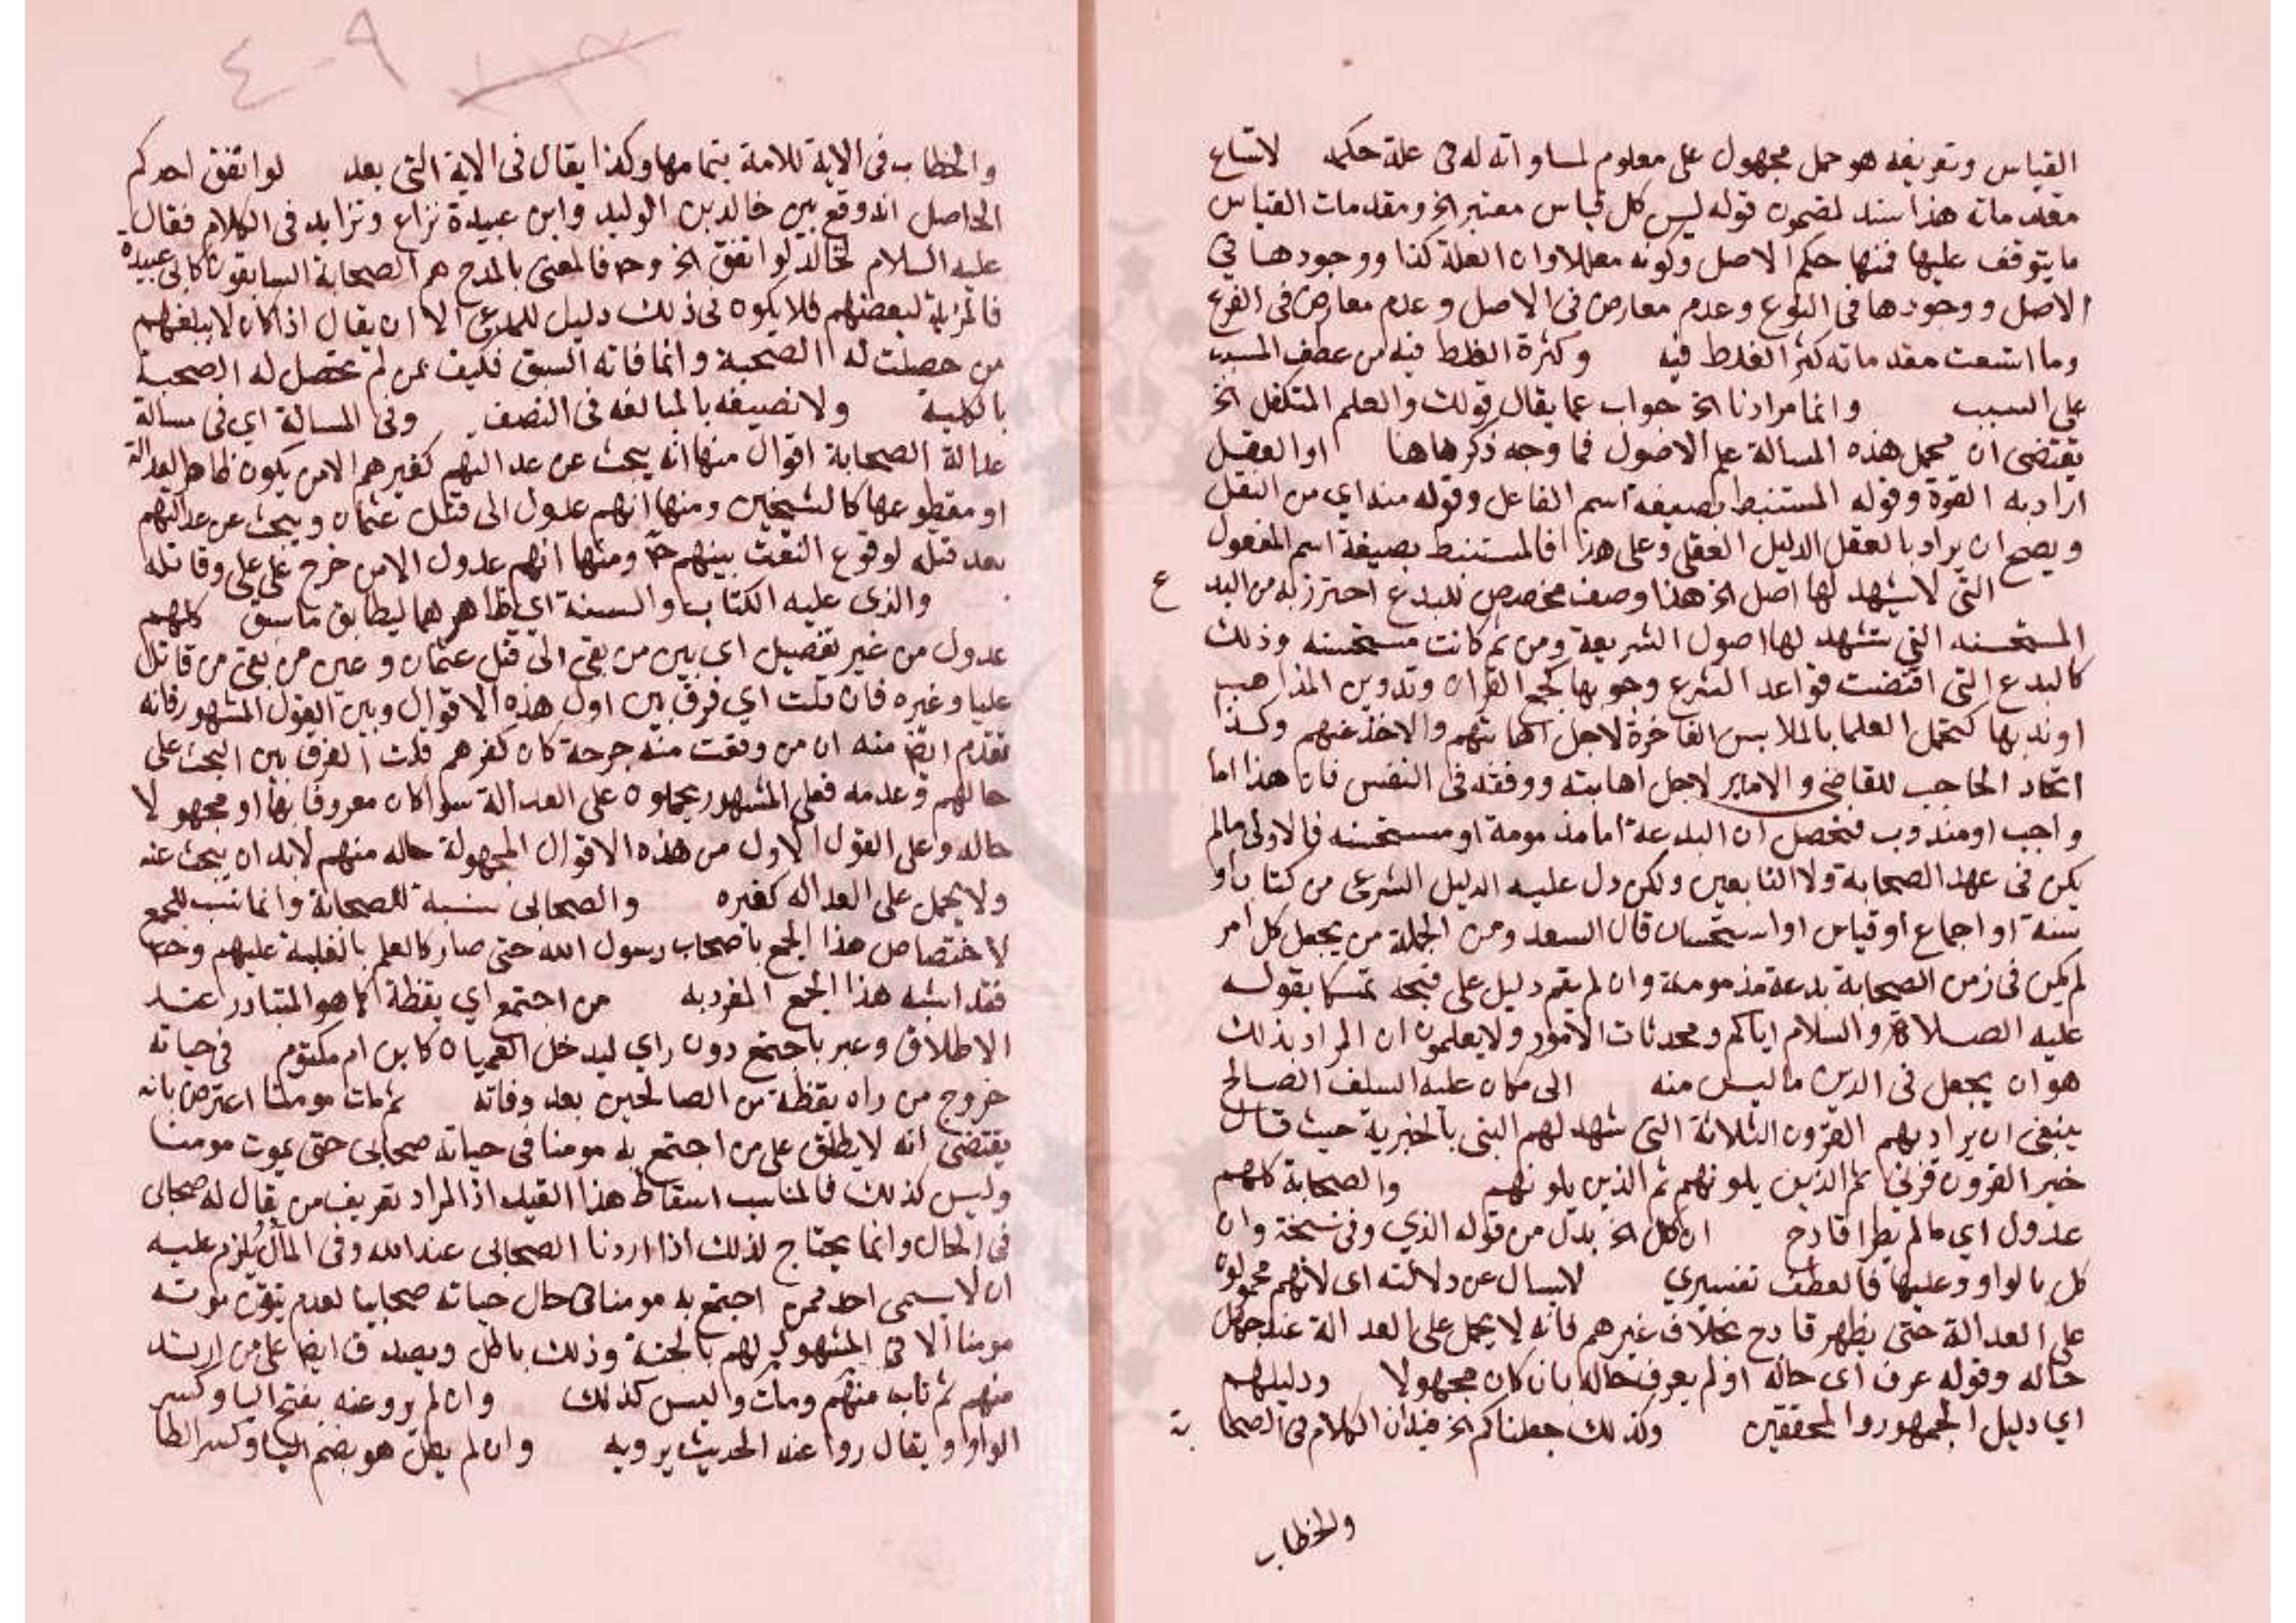 القياس وتعريفه هو حمل مجهول على معلوم لمساواته له فى علة حكمه لاتساع
مقدماته هذا سند لمضمون قوله ليس كل قياس معتبر الخ ومقدمات القياس
ما يتوقف عليها فمنها حكم الاصل وكونه معللا وان العلة كذا ووجودها فى
الاصل ووجودها فى الفرع وعدم معارض فى الاصل وعدم معارض فى الفرع
وما اتسعت مقدماته كثر الغلط فيه وكثرة الغلط فيه من عطف المسبب
على السبب وانما مرادنا الخ جواب عما يقال قولك والعلم المتكفل الخ
يقتضى ان محمل هذه المسالة علم الاصول فما وجه ذكرها هنا او العقل
اراد به القوة وقوله المستنبط بصيغة اسم الفاعل وقوله منه اي من النقل
ويصح ان يراد بالعقل الدليل العقلى وعلى هذا فالمستنبط بصيغة اسم المفعول
التى لا يشهد لها اصل الخ هذا وصف مخصص للبدع احترز به من البدع
المستحسنه التى تشهد لها اصول الشريعة ومن ثم كانت مستحسنه وذلك
كالبدع التى اقتضت قواعد الشرع وجوبها كجمع القران وتدوين المذاهب
او ندبها كتجمل العلما بالملابس الفاخرة لاجل اهابتهم والاخذ عنهم وكذا
اتخاذ الحاجب للقاضى والامير لاجل اهابته ووقعه فى النفس فان هذا اما
واجب او مندوب فتحصل ان البدعة اما مذمومة او مستحسنه فالاولى ما لم
يكن فى عهد الصحابة ولا التابعين ولكن دل عليه الدليل الشرعى من كتاب او
سنة او اجماع او قياس او استحسان قال السعد ومن الجهلة من يجعل كل امر
لم يكن فى زمن الصحابة بدعة مذمومة وان لم يقم دليل على قبحه تمسكا بقوله
عليه الصلاة والسلام اياكم ومحدثات الامور ولا يعلمون ان المراد بذلك
هو ان يجعل فى الدين ما ليس منه الى ما كان عليه السلف الصالح
ينبغى ان يراد بهم القرون الثلاثة التى شهد لهم النبى بالخيرية حيث قال
خير القرون قرنى ثم الذين يلونهم ثم الذين يلونهم والصحابة كلهم
عدول اي ما لم يطرا قادح ان كل الخ بدل من قوله الذي وفى نسخة وان
كل بالواو وعليها فالعطف تفسيري لا يسال عن دلالته اى لانهم محمولون
على العدالة حتى يظهر قادح بخلاف غيرهم فانه لا يحمل على العدالة عند جهل
حاله وقوله عرف اى حاله او لم يعرف حاله بان كان مجهولا ودليلهم
اي دليل الجمهور والمحققين وكذلك جعلناكم الخ فيه ان الكلام فى الصحابة
والخطاب
٤٠٩
والخطاب فى الاية للامة بتمامها وكذا يقال فى الاية التى بعد لو انفق احدكم
الحاصل انه وقع بين خالد بن الوليد وابن عبيدة نزاع وتزايد فى الكلام فقال
عليه السلام لخالد لو انفق الخ وح فالمعنى بالمدح هم الصحابة السابقون كابى عبيدة
فالمزية لبعضهم فلا يكون فى ذلك دليل للمدعى الا ان يقال اذا كان لا يبلغهم
من حصلت له الصحبة وانما فاته السبق فكيف بمن لم تحصل له الصحبة
بالكلية ولا نصيفه بالمبالغه فى النصف وفى المسالة اي فى مسالة
عدالة الصحابة اقوال منها انه يبحث عن عدالتهم كغيرهم الا من يكون ظاهر العدالة
او مقطوعها كالشيخين ومنها انهم عدول الى قتل عثمان ويبحث عن عدالتهم
بعد قتله لوقوع الفتن بينهم ح ومنها انهم عدول الا من خرج على على وقاتله
والذى عليه الكتاب والسنة اي ظاهرهما ليطابق ما سبق كلهم
عدول من غير تفصيل اى بين من بقى الى قتل عثمان وبين من بقى من قاتل
عليا وغيره فان قلت اي فرق بين اول هذه الاقوال وبين القول المشهور فانه
تقدم ايضا منه ان من وقعت منه جرحة كان كغيرهم قلت الفرق بين البحث على
حالهم وعدمه فعلى المشهور يحملون على العدالة سوا كان معروفا بها او مجهولا
حاله وعلى القول الاول من هذه الاقوال المجهولة حاله منهم لابد ان يبحث عنه
ولا يحمل على العداله كغيره والصحابى نسبة للصحابة وانما نسب للجمع
لاختصاص هذا الجمع باصحاب رسول الله حتى صار كالعلم بالغلبة عليهم وح
فقد اشبه هذا الجمع المفرد به من اجتمع اي يقظة كما هو المتبادر عند
الاطلاق وعبر باجتمع دون راي ليدخل العميان كابن ام مكتوم فى حياته
خروج من راه يقظة من الصالحين بعد وفاته ثم مات مومنا اعترض بانه
يقتضى انه لا يطلق على من اجتمع به مومنا فى حياته صحابى حتى يموت مومنا
وليس كذلك فالمناسب اسقاط هذا القيد اذ المراد تعريف من يقال له صحابى
فى الحال وانما يحتاج لذلك اذا اردنا الصحابى عند الله وفى المآل ويلزم عليه
ان لا يسمى احد ممن اجتمع به مومنا فى حال حياته صحابيا لعدم تيقن موته
مومنا الا فى المشهود لهم بالجنة وذلك باطل ويصدق ايضا على من ارتد
منهم ثم تاب منهم ومات وليس كذلك وان لم يرو عنه بفتح اليا وكسر
الواو ويقال روا عنه الحديث يرويه وان لم يطل هو بضم اليا وكسر الطا